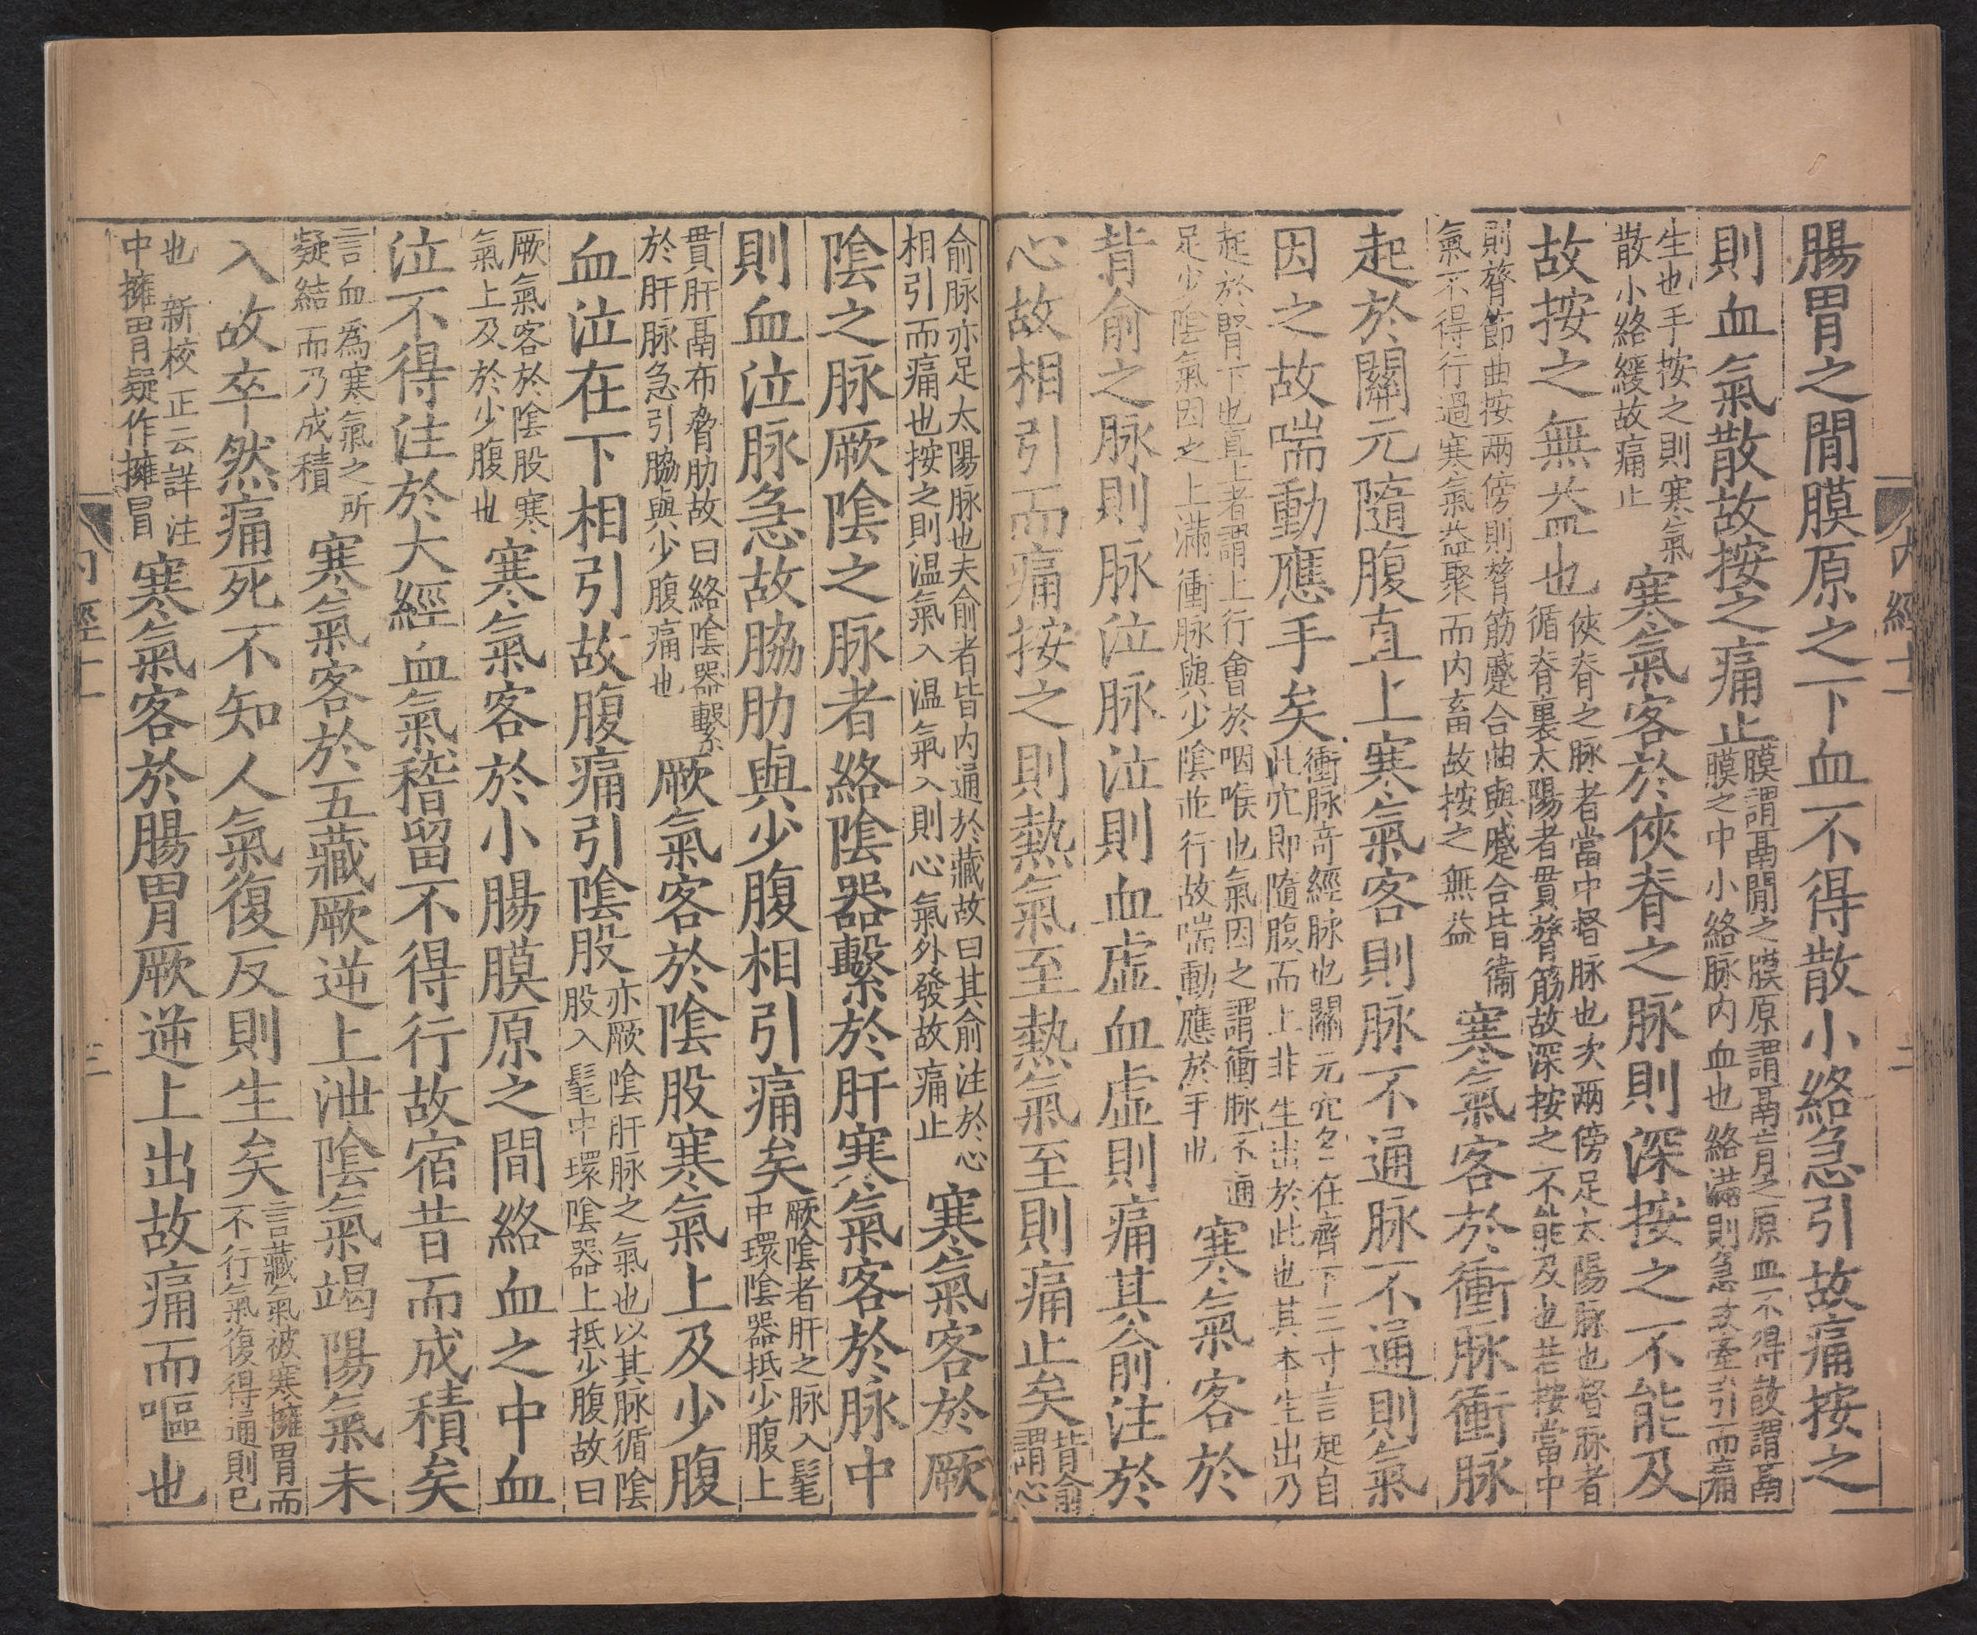 腸胃之間膜原之下血不得散小絡急引故痛按之
則血氣散故按之痛止膜謂鬲間之膜原謂鬲肓之原血不得散謂鬲
膜之中小絡脉内血也絡滿則急故牽引而痛
生也手按之則寒氣
散小絡緩故痛止寒氣客於俠脊之脉則深按之不能及
故按之無益也俠脊之脉者當中督脉也次兩傍足太陽脉也督脉者
循脊裏太陽者貫膂筋故深按之不能及也若按當中
則膂節曲按兩傍則膂筋蹙合曲與蹙合皆衞
氣不得行過寒氣益聚而内畜故按之無益寒氣客於衝脉衝脉
起於關元隨腹直上寒氣客則脉不通脉不通則氣
因之故喘動應手矣衝脉奇經脉也關元穴名在齊下三寸言起自
此穴即隨腹而上非生出於此也其本生出乃
起於腎下也直上者謂上行會於咽喉也氣因之謂衝脉不通
足少陰氣因之上滿衝脉與少陰並行故喘動應於手也寒氣客於
背俞之脉則脉泣脉泣則血虚血虚則痛其俞注於
心故相引而痛按之則熱氣至熱氣至則痛止矣背俞
謂心
俞脉亦足太陽脉也夫俞者皆内通於藏故曰其俞注於心
相引而痛也按之則温氣入温氣入則心氣外發故痛止寒氣客於厥
陰之脉厥陰之脉者絡陰器繫於肝寒氣客於脉中
則血泣脉急故脇肋與少腹相引痛矣厥陰者肝之脉入髦
中環陰器抵少腹上
貫肝鬲布脅肋故曰絡陰器繫
於肝脉急引脇與少腹痛也厥氣客於陰股寒氣上及少腹
血泣在下相引故腹痛引陰股亦厥陰肝脉之氣也以其脉循陰
股入髦中環陰器上抵少腹故曰
厥氣客於陰股寒
氣上及於少腹也寒氣客於小腸膜原之間絡血之中血
泣不得注於大經血氣稽留不得行故宿昔而成積矣
言血爲寒氣之所
凝結而乃成積寒氣客於五藏厥逆上泄陰氣竭陽氣未
入故卒然痛死不知人氣復反則生矣言藏氣被寒擁胃而
不行氣復得通則已
也 新校正云詳注
中擁胃疑作擁冒寒氣客於腸胃厥逆上出故痛而嘔也
内經十一
二
内經十一
三